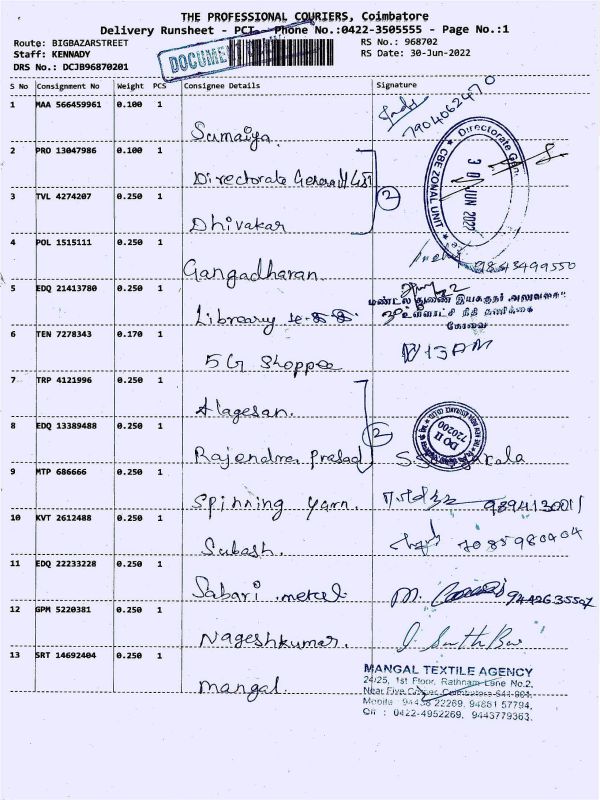 THE PROFESSIONAL COURIERS, Coimbatore
Delivery Runsheet - PCT Phone No.:0422-3505555 - Page No.:1
Route: BIGBAZARSTREET RS No.: 968702
Staff: KENNADY RS Date: 30-Jun-2022
DRS No.: DCJB96870201
S No Consignment No Weight PCS Consignee Details Signature
1 MAA 566459961 0.100 1
Sumaiya 7904062470
2 PRO 13047986 0.100 1
Directorate General
Directorate Gen.
CBE ZONAL UNIT
JUN 2022
3 TVL 4274207 0.250 1
Dhivakar
2
4 POL 1515111 0.250 1
Gangadharan 9843499550
5 EDQ 21413780 0.250 1
Library
மண்டல துணை இயக்குநர் அலுவலகம்
உள்ளாட்சி நிதி தணிக்கை
கோவை
6 TEN 7278343 0.170 1
5G Shoppee
7 TRP 4121996 0.250 1
Alagesan.
8 EDQ 13389488 0.250 1
Rajendra prasad
2
9 MTP 686666 0.250 1
Spinning yarn.
10 KVT 2612488 0.250 1
Subash. 7085980404
11 EDQ 22233228 0.250 1
Sabari metal 9442635507
12 GPM 5220381 0.250 1
Nageshkumar.
13 SRT 14692404 0.250 1
mangal.
MANGAL TEXTILE AGENCY
24/25, 1st Floor, Rathnam Lane No.2,
Near Five Corner, Coimbatore-641 001.
Mobile 94438 22269, 94881 57794,
Off : 0422-4952269, 9443779363.